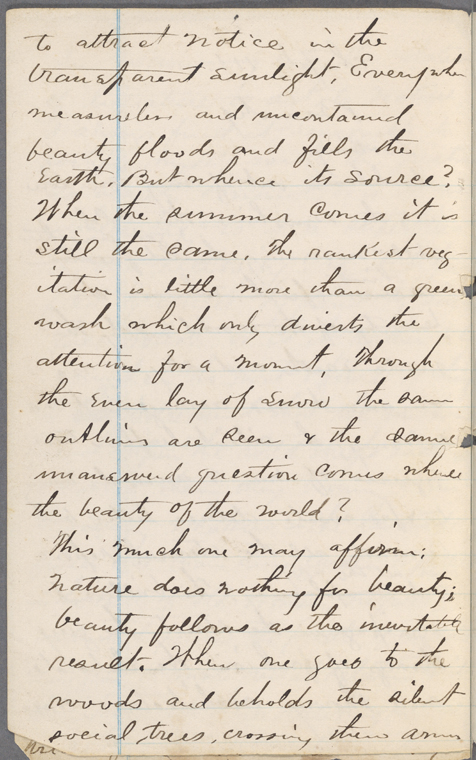 to attract notice in the
transparent sunlight. Everywhere
measureless and uncontained
beauty floods and fills the
Earth. But whence its source?
When the summer comes it is
still the same. The rankest veg-
itation is little more than a green
wash which only diverts the
attention for a moment. Through
the even lay of snow the same
outlines are seen & the same
unanswered question comes whence
the beauty of the world?
This much one may affirm:
Nature does nothing for beauty;
beauty follows as the inevitable
result. When one goes to the
woods and beholds the silent
social trees, crossing their arms